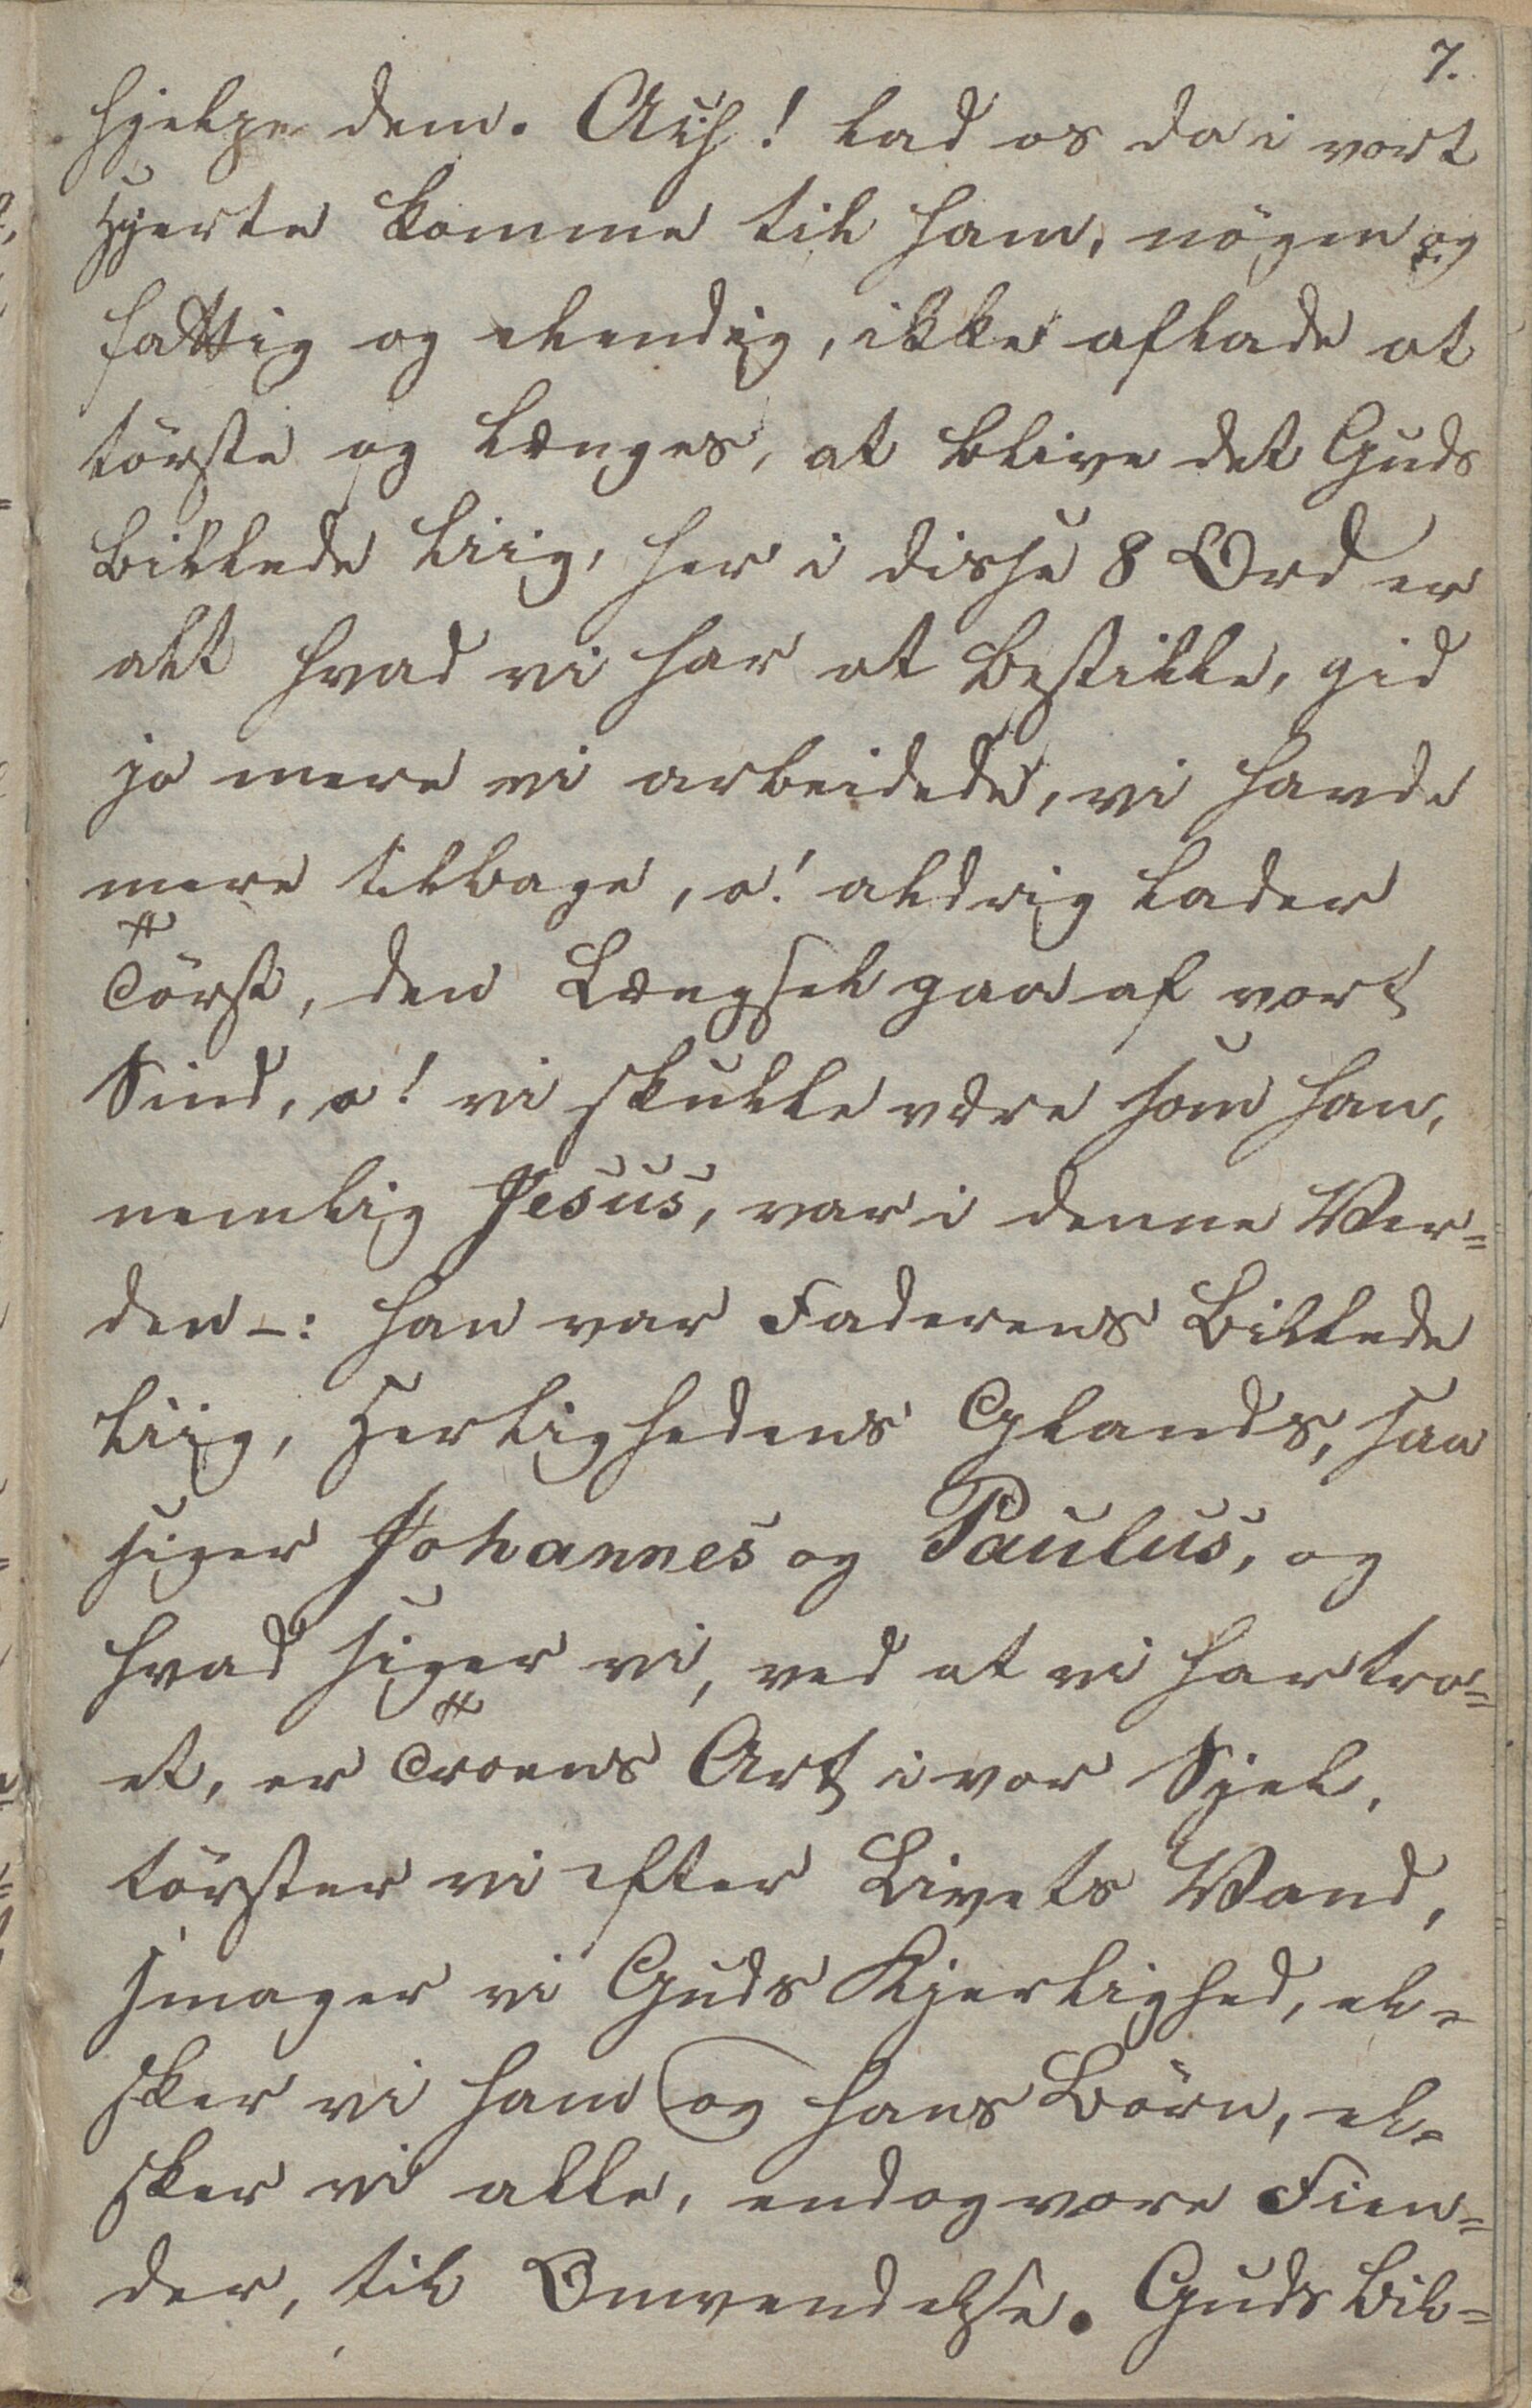 7.
hjelpe dem. Ach! lad os da i vort
Hjerte komme til ham, nögen og
fattig og elendig, ikke aflade at
törste og længes, at blive det Guds
billede liig, her i disse 8 Ord er
alt hvad vi har at bestille, gid
jo mere vi arbeidede, vi havde
mere tilbage, o! aldrig lader
Törst, den Længsel gaa af vort
Sind, o! vi skulle være som han,
nemlig Jesus, var i denne Ver=
den -: han var Faderens Billede
liig, Herlighedens Glands, saa
siger Johannes og Paulus, og
hvad siger vi, ved at vi har tro=
et, er Troens Art i vor Sjel,
törster vi efter Livets Vand,
smager vi Guds Kjerlighed, el=
sker vi ham og hans Börn, el=
sker vi alle, endog vore Fien=
der, til Omvendelse. Guds bil=